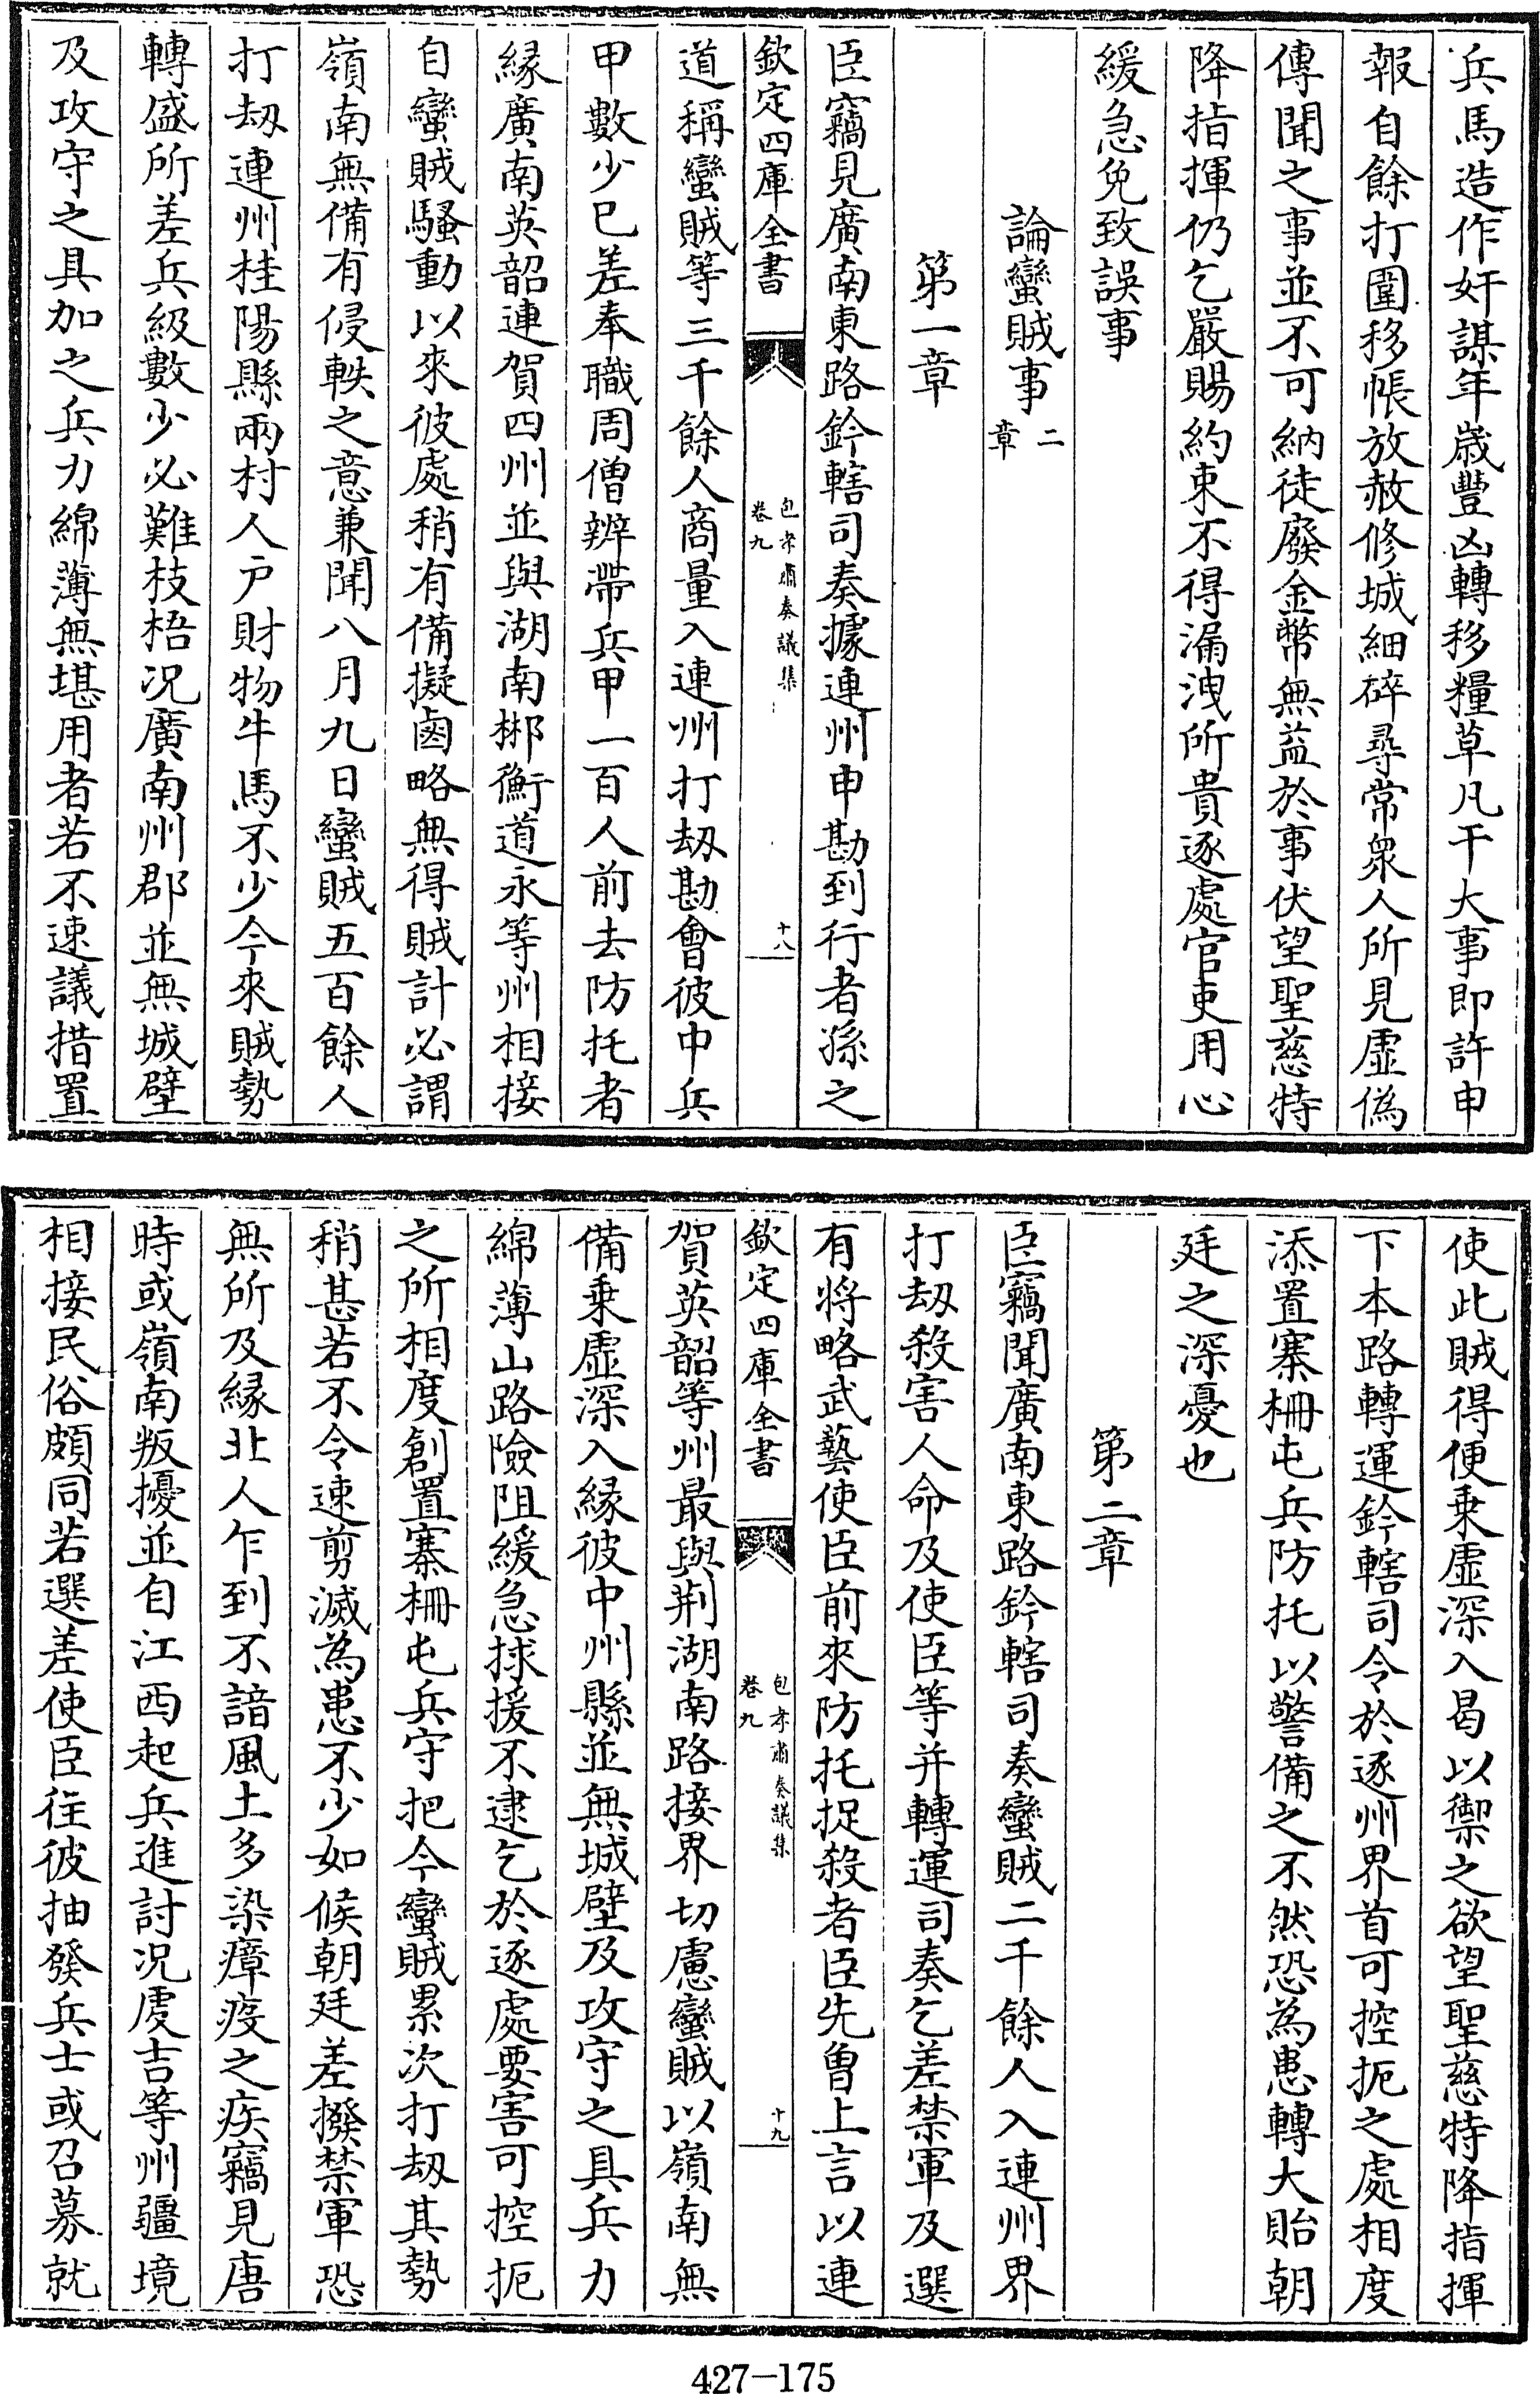 兵馬造作奸謀年歳豐凶轉移糧草凡干大事即許申
報自餘打圍移帳放赦修城細碎尋常衆人所見虛偽
傳聞之事並不可納徒廢金幣無益於事伏望聖慈特
降指揮仍乞嚴賜約束不得漏洩所貴逐處官吏用心
緩急免致誤事
論蠻賊事二章
第一章
臣竊見廣南東路鈐轄司奏據連州申勘到行者孫之
欽定四庫全書
包孝肅奏議集
卷九
十八
道稱蠻賊等三千餘人商量入連州打刼勘會彼中兵
甲數少已差奉職周僧辨帶兵甲一百人前去防托者
緣廣南英韶連賀四州並與湖南郴衡道永等州相接
自蠻賊騷動以來彼處稍有備擬鹵略無得賊計必謂
嶺南無備有侵軼之意兼聞八月九日蠻賊五百餘人
打刼連州桂陽縣兩村人户財物牛馬不少今來賊勢
轉盛所差兵級數少必難枝梧况廣南州郡並無城壁
及攻守之具加之兵力綿薄無堪用者若不速議措置
使此賊得便乗虛深入曷以禦之欲望聖慈特降指揮
下本路轉運鈐轄司令於逐州界首可控扼之處相度
添置寨柵屯兵防托以警備之不然恐為患轉大貽朝
廷之深憂也
第二章
臣竊聞廣南東路鈐轄司奏蠻賊二千餘人入連州界
打刼殺害人命及使臣等并轉運司奏乞差禁軍及選
有將略武藝使臣前來防托捉殺者臣先曽上言以連
欽定四庫全書
包孝肅奏議集
卷九
十九
賀英韶等州最與荆湖南路接界切慮蠻賊以嶺南無
備乗虛深入緣彼中州縣並無城壁及攻守之具兵力
綿薄山路險阻緩急捄援不逮乞於逐處要害可控扼
之所相度創置寨柵屯兵守把今蠻賊累次打刼其勢
稍甚若不令速剪滅為患不少如候朝廷差撥禁軍恐
無所及緣北人乍到不諳風土多染瘴疫之疾竊見唐
時或嶺南叛擾並自江西起兵進討况虔吉等州疆境
相接民俗頗同若選差使臣往彼抽發兵士或召募就
427—175